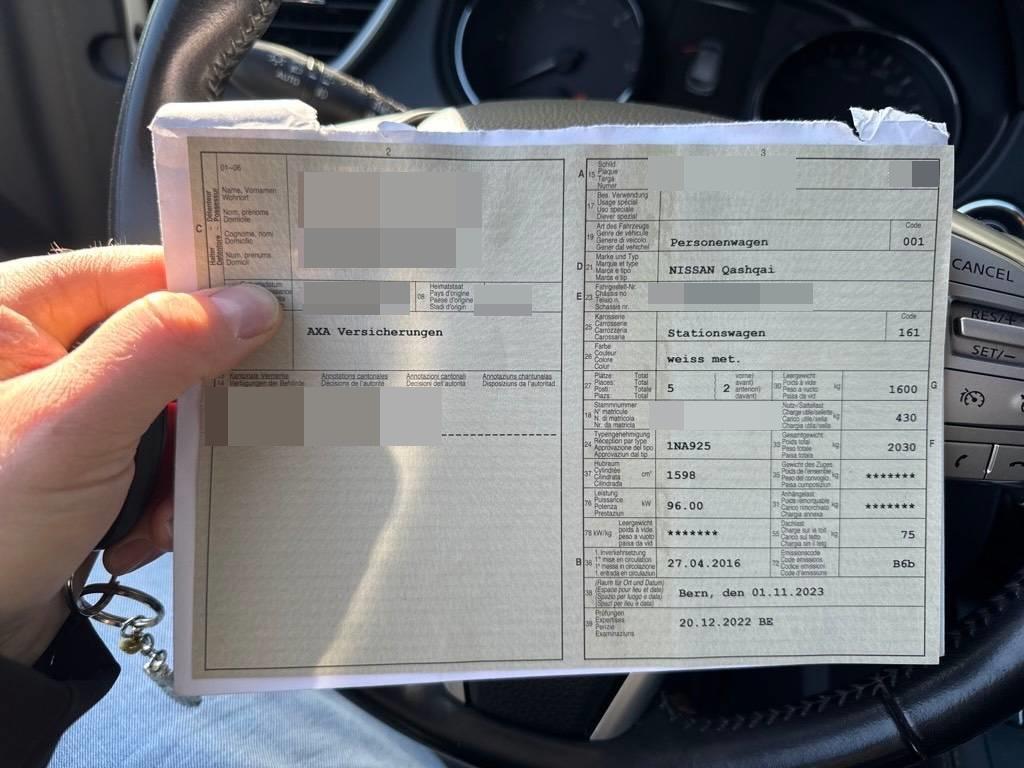 2
01–06
Halter
Détenteur
Detentore
Possessur
C
Name, Vornamen
Wohnort
Nom, prénoms
Domicile
Cognome, nomi
Domicilio
Num, prenums
Domicil
08
Heimatstaat
Pays d'origine
Paese d'origine
Stadi d'origin
AXA Versicherungen
Kantonale Vermerke
Annotations cantonales
Annotazioni cantonali
Annotaziuns chantunalas
14
Verfügungen der Behörde
Décisions de l'autorité
Decisioni dell'autorità
Disposiziuns da l'autoritad
3
A
15
Schild
Plaque
Targa
Numer
17
Bes. Verwendung
Usage spécial
Uso speciale
Diever spezial
19
Art des Fahrzeugs
Genre de véhicule
Genere di veicolo
Gener dal vehichel
Personenwagen
Code
001
D
21
Marke und Typ
Marque et type
Marca e tipo
Marca e tip
NISSAN Qashqai
E
23
Fahrgestell-Nr.
Châssis no
Telaio n.
Schassis nr.
25
Karosserie
Carrosserie
Carrozzeria
Carossaria
Stationswagen
Code
161
26
Farbe
Couleur
Colore
Colur
weiss met.
27
Plätze: Total
Places: Total
Posti: Totale
Plazs: Total
5
2
vorne)
avant)
anteriori)
davant)
30
Leergewicht
Poids à vide
Peso a vuoto
Paisa da vid
kg
1600
G
18
Stammnummer
N° matricule
N. di matricola
Nr. da matricla
Nutz-/Sattellast
Charge utile/sellette
Carico utile/sella
Chargia utila/sella
kg
430
24
Typengenehmigung
Réception par type
Approvazione del tipo
Approvaziun dal tip
1NA925
33
Gesamtgewicht
Poids total
Peso totale
Paisa totala
kg
2030
F
37
Hubraum
Cylindrée
Cilindrata
Cilindrada
cm³
1598
35
Gewicht des Zuges
Poids de l'ensemble
Peso del convoglio
Paisa cumposiziun
kg
*******
76
Leistung
Puissance
Potenza
Prestaziun
kW
96.00
31
Anhängelast
Poids remorquable
Carico rimorchiato
Chargia annexa
kg
*******
78
kW/kg
Leergewicht
poids à vide
peso a vuoto
paisa da vid
*******
55
Dachlast
Charge sur le toit
Carico sul tetto
Chargia sin il tetg
kg
75
B
36
1. Inverkehrsetzung
1re mise en circulation
1a messa in circolazione
1. entrada en circulaziun
27.04.2016
72
Emissionscode
Code émissions
Codice emissioni
Code d'emissiuns
B6b
38
(Raum für Ort und Datum)
(Espace pour lieu et date)
(Spazio per luogo e data)
(Spazi per lieu e data)
Bern, den 01.11.2023
39
Prüfungen
Expertises
Perizie
Examinaziuns
20.12.2022 BE
AUTO
CANCEL
RES/+
SET/−